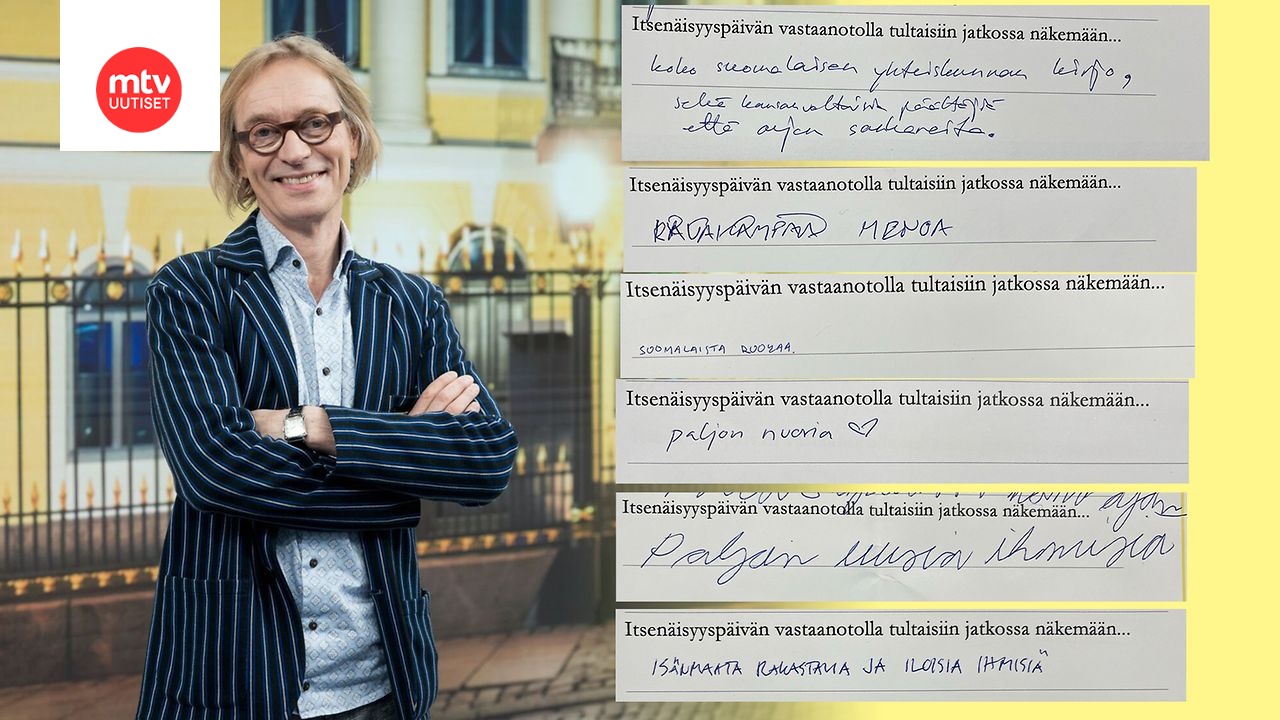 mtv
UUTISET
Itsenäisyyspäivän vastaanotolla tultaisiin jatkossa näkemään...
koko suomalaisen yhteiskunnan kirjo,
sekä kansanvaltaisia päättäjiä
että arjen sankareita.
Itsenäisyyspäivän vastaanotolla tultaisiin jatkossa näkemään...
MENOA
Itsenäisyyspäivän vastaanotolla tultaisiin jatkossa näkemään...
SUOMALAISTA RUOKAA.
Itsenäisyyspäivän vastaanotolla tultaisiin jatkossa näkemään...
paljon nuoria ♡
Itsenäisyyspäivän vastaanotolla tultaisiin jatkossa näkemään...
Paljon uusia ihmisiä
Itsenäisyyspäivän vastaanotolla tultaisiin jatkossa näkemään...
ISÄNMAATA RAKASTAVIA JA ILOISIA IHMISIÄ